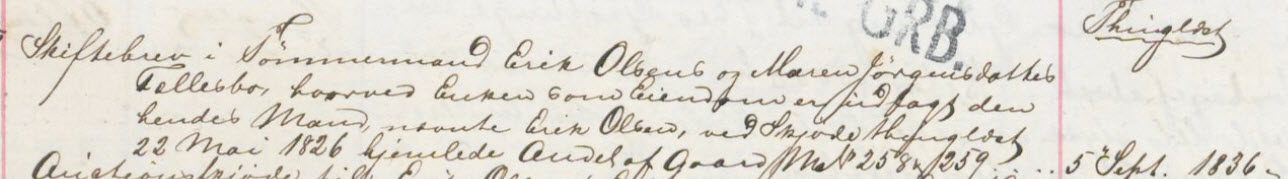 GRB.
Thinglæst
Skiftebrev i Tømmermand Erik Olsens og Maren Jörgensdatters
Fællesbo, hvorved Enken som Eiendom er udlagt den
hendes Mand, nævnte Erik Olsen, ved Skjöde thinglæst
22 Mai 1826 hjemlede Andel af Gaard Mat. No 258 & 259 .... 5 Sept. 1836
Auctionsskjöde til Erik